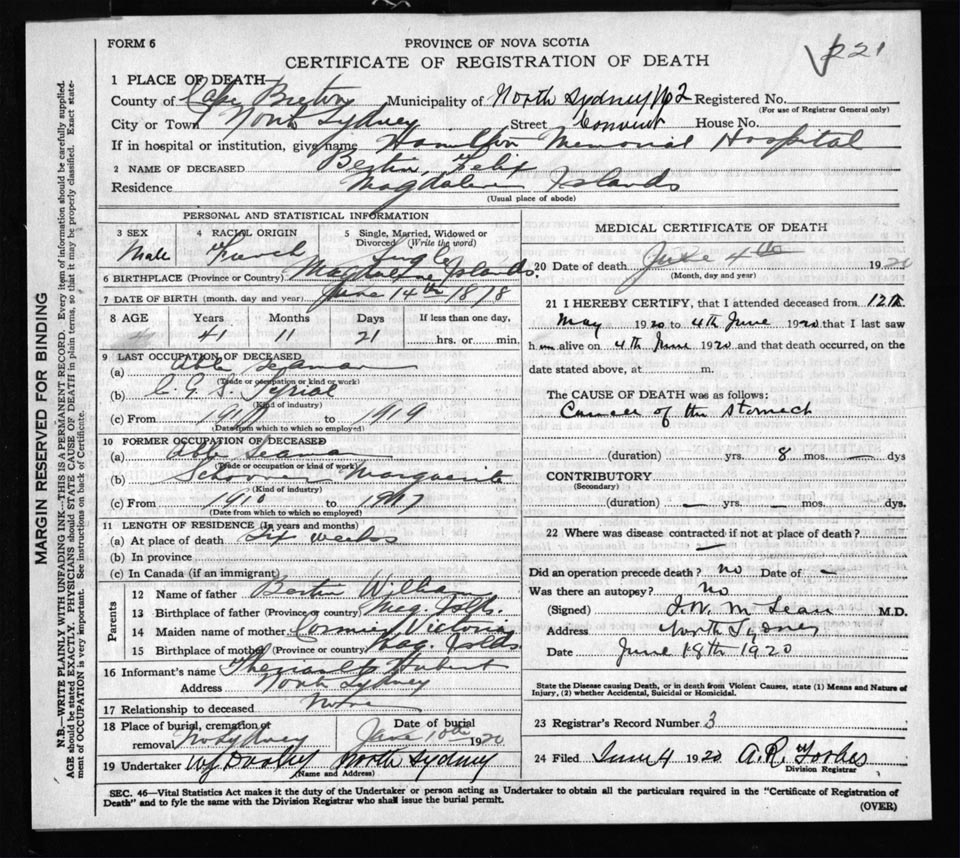 FORM 6
PROVINCE OF NOVA SCOTIA
CERTIFICATE OF REGISTRATION OF DEATH
221
1 PLACE OF DEATH
County of Cape Breton Municipality of North Sydney No 2 Registered No.
(For use of Registrar General only)
City or Town North Sydney Street Convent House No.
If in hospital or institution, give name Hamilton Memorial Hospital
2 NAME OF DECEASED Bertin, Felix
Residence Magdalen Islands
(Usual place of abode)
PERSONAL AND STATISTICAL INFORMATION
3 SEX Male
4 RACIAL ORIGIN French
5 Single, Married, Widowed or Divorced (Write the word) Single
6 BIRTHPLACE (Province or Country) Magdalene Islands.
7 DATE OF BIRTH (month, day and year) June 14th 1878
8 AGE Years Months Days If less than one day,
41 11 21 hrs. or min.
9 LAST OCCUPATION OF DECEASED
(a) Able Seaman
(Trade or occupation or kind or work)
(b) C. G. S.
(Kind of industry)
(c) From to 1919
(Date from which to which so employed)
10 FORMER OCCUPATION OF DECEASED
(a) Able Seaman
(Trade or occupation or kind of work)
(b) Schooner Marguerite
(Kind of industry)
(c) From 1910 to 1917
(Date from which to which so employed)
11 LENGTH OF RESIDENCE (In years and months)
(a) At place of death Six weeks
(b) In province
(c) In Canada (if an immigrant)
Parents
12 Name of father Bertin William
13 Birthplace of father (Province or country) Mag. Islds.
14 Maiden name of mother Cormier Victoria
15 Birthplace of mother (Province or country) Mag. Islds
16 Informant's name Theriault Hubert
Address North Sydney
17 Relationship to deceased None
18 Place of burial, cremation or removal No Sydney
Date of burial June 10th 1920
19 Undertaker North Sydney
(Name and Address)
MEDICAL CERTIFICATE OF DEATH
20 Date of death June 4th 1920
(Month, day and year)
21 I HEREBY CERTIFY, that I attended deceased from 12th
May 1920 to 4th June 1920 that I last saw
him alive on 4th June 1920 and that death occurred, on the
date stated above, at m.
The CAUSE OF DEATH was as follows:
Cancer of the stomach
(duration) yrs. 8 mos. — dys
CONTRIBUTORY
(Secondary)
(duration) — yrs. — mos. dys.
22 Where was disease contracted if not at place of death?
—
Did an operation precede death? No Date of —
Was there an autopsy? No
(Signed) J. W. McLean M.D.
Address North Sydney
Date June 18th 1920
State the Disease causing Death, or in death from Violent Causes, state (1) Means and Nature of
Injury, (2) whether Accidental, Suicidal or Homicidal.
23 Registrar's Record Number 3
24 Filed June 4 1920 A. R. Forbes
Division Registrar
SEC. 46—Vital Statistics Act makes it the duty of the Undertaker or person acting as Undertaker to obtain all the particulars required in the "Certificate of Registration of
Death" and to fyle the same with the Division Registrar who shall issue the burial permit.
(OVER)
MARGIN RESERVED FOR BINDING
N.B.—WRITE PLAINLY WITH UNFADING INK—THIS IS A PERMANENT RECORD. Every item of information should be carefully supplied.
AGE should be stated EXACTLY. PHYSICIANS should STATE CAUSE OF DEATH in plain terms, so that it may be properly classified. Exact state-
ment of OCCUPATION is very important. See instructions on back of Certificate.